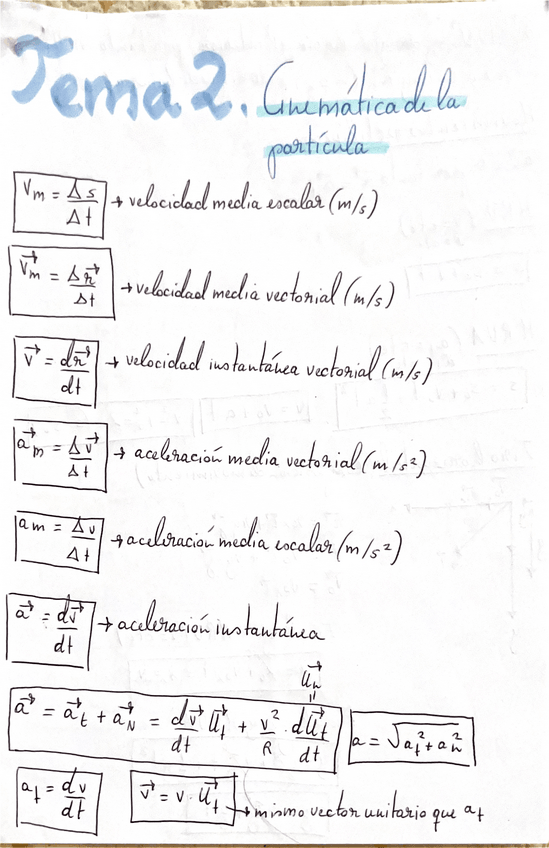 Tema 2. Cinemática de la
partícula
v_m = Δs/Δt → velocidad media escalar (m/s)
v⃗_m = Δr⃗/Δt → velocidad media vectorial (m/s)
v⃗ = dr⃗/dt → velocidad instantánea vectorial (m/s)
a⃗_m = Δv⃗/Δt → aceleración media vectorial (m/s²)
a_m = Δv/Δt → aceleración media escalar (m/s²)
a⃗ = dv⃗/dt → aceleración instantánea
u⃗_N
=
a⃗ = a⃗_t + a⃗_N = dv⃗/dt u⃗_t + v²/R · du⃗_t/dt a = √(a_t² + a_N²)
a_t = dv/dt v⃗ = v · u⃗_t → mismo vector unitario que a_t